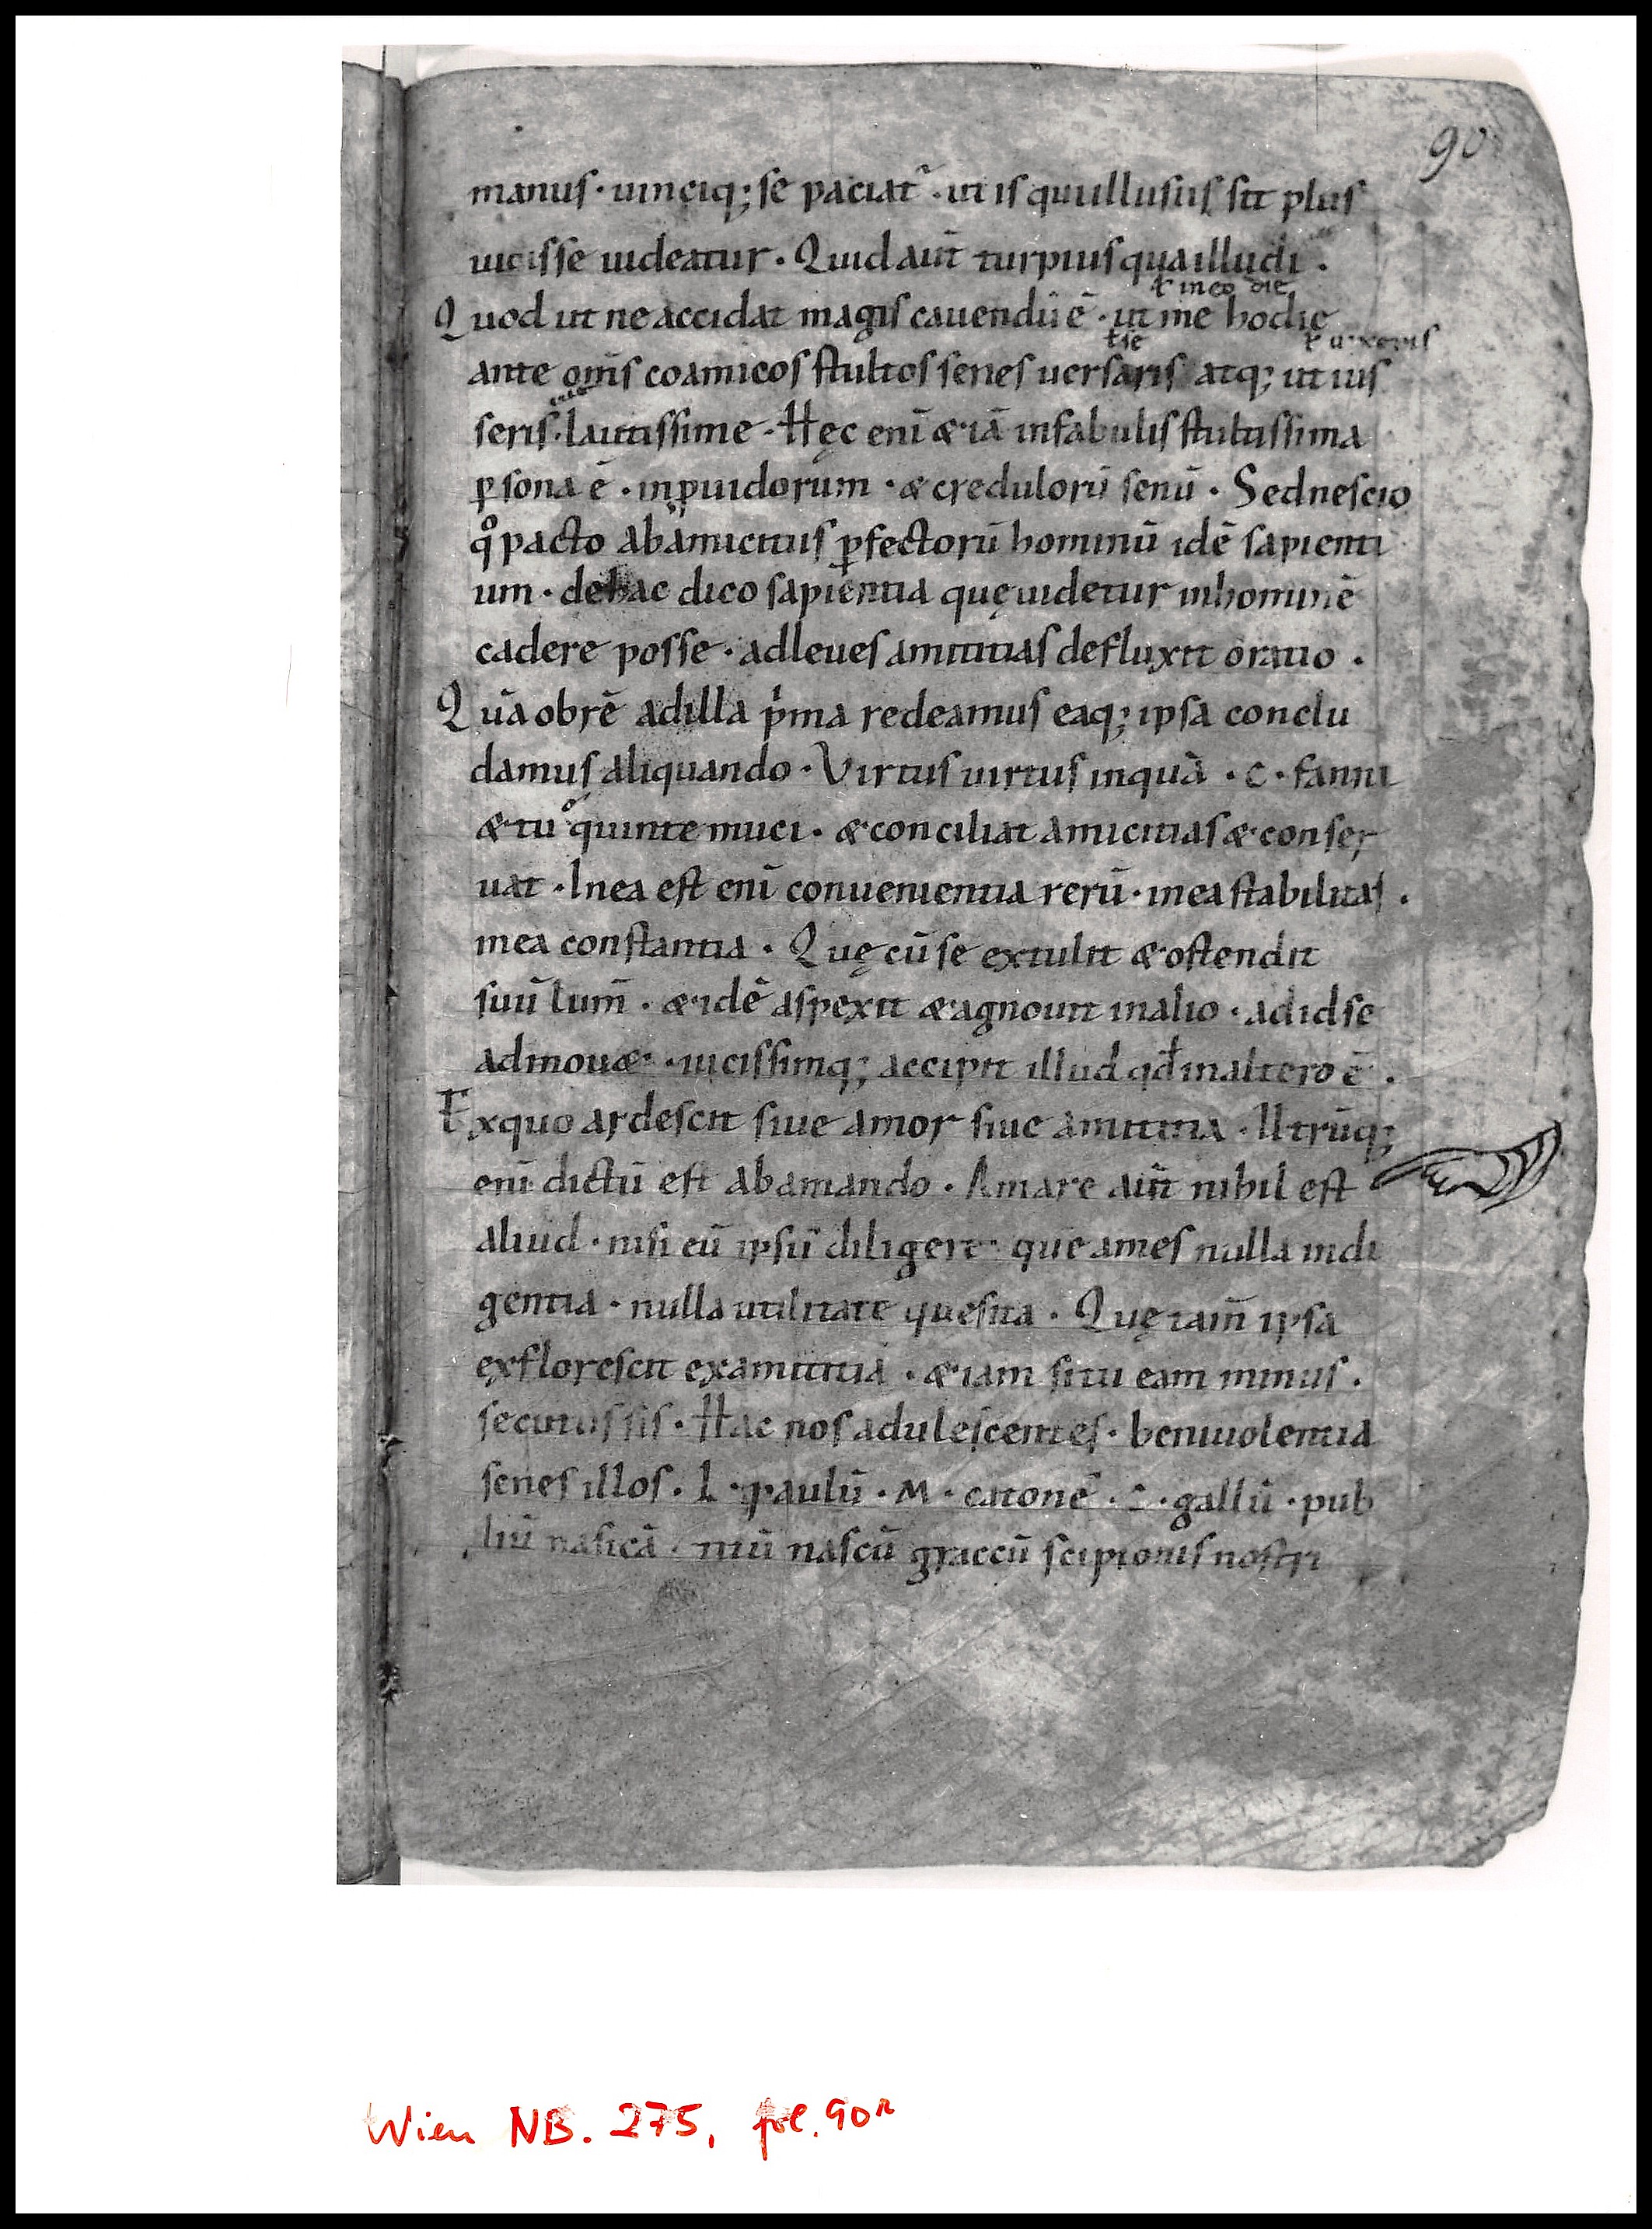 90
manus · uinciq; se paciat᷑ · ut is quiillusus sit plus
uicisse uideatur · Quid aut̄ turpius qua illudi ·
ł in eo die
Quod ut ne accidat magis cauendū ē · ut me hodie
tie
ł uixeris
ante om̄s coamicos stultos senes uersaris atq; ut ius
seris · lautissime · Hęc enī & iā infabulis stultissima
ꝑsona ē · inꝓuidorum · & credulorū senū · Sed nescio
qͦ pacto abamicitiis ꝑfectorū hominū idē sapienti
um · dehac dico sapientia quę uidetur inhominē
cadere posse · adleues amititias defluxit oratio ·
Quā obrē adilla p̍ma redeamus eaq; ipsa conclu
damus aliquando · Virtus uirtus inquā · C · fanni
& tu quinte muci · & conciliat amicitias & conser
uat · Inea est enī conuenientia rerū · inea stabilitas ·
inea constantia · Quę cū se extulit & ostendit
suū lum̄ · & idē aspexit & agnouit inalio · adidse
admou& · uicissimq; accipit illud qd̄ inaltero ē ·
Exquo ardescit siue amor siue amititia · Utrūq;
enī dictū est abamando · Amare aut̄ nihil est
aliud · nisi eū ipsū diligere · que ames nulla indi
gentia · nulla utilitate quesita · Quę iam̄ ipsa
exflorescit examititia · & iam si tu eam minus ·
secutus sis · Hac nos adulescentes · beniuolentia
senes illos · L · paulū · M · catonē · C · gallū · pub
liū nasicā · niū nascū graccū scipionis nostri
Wien NB. 275, fol. 90r